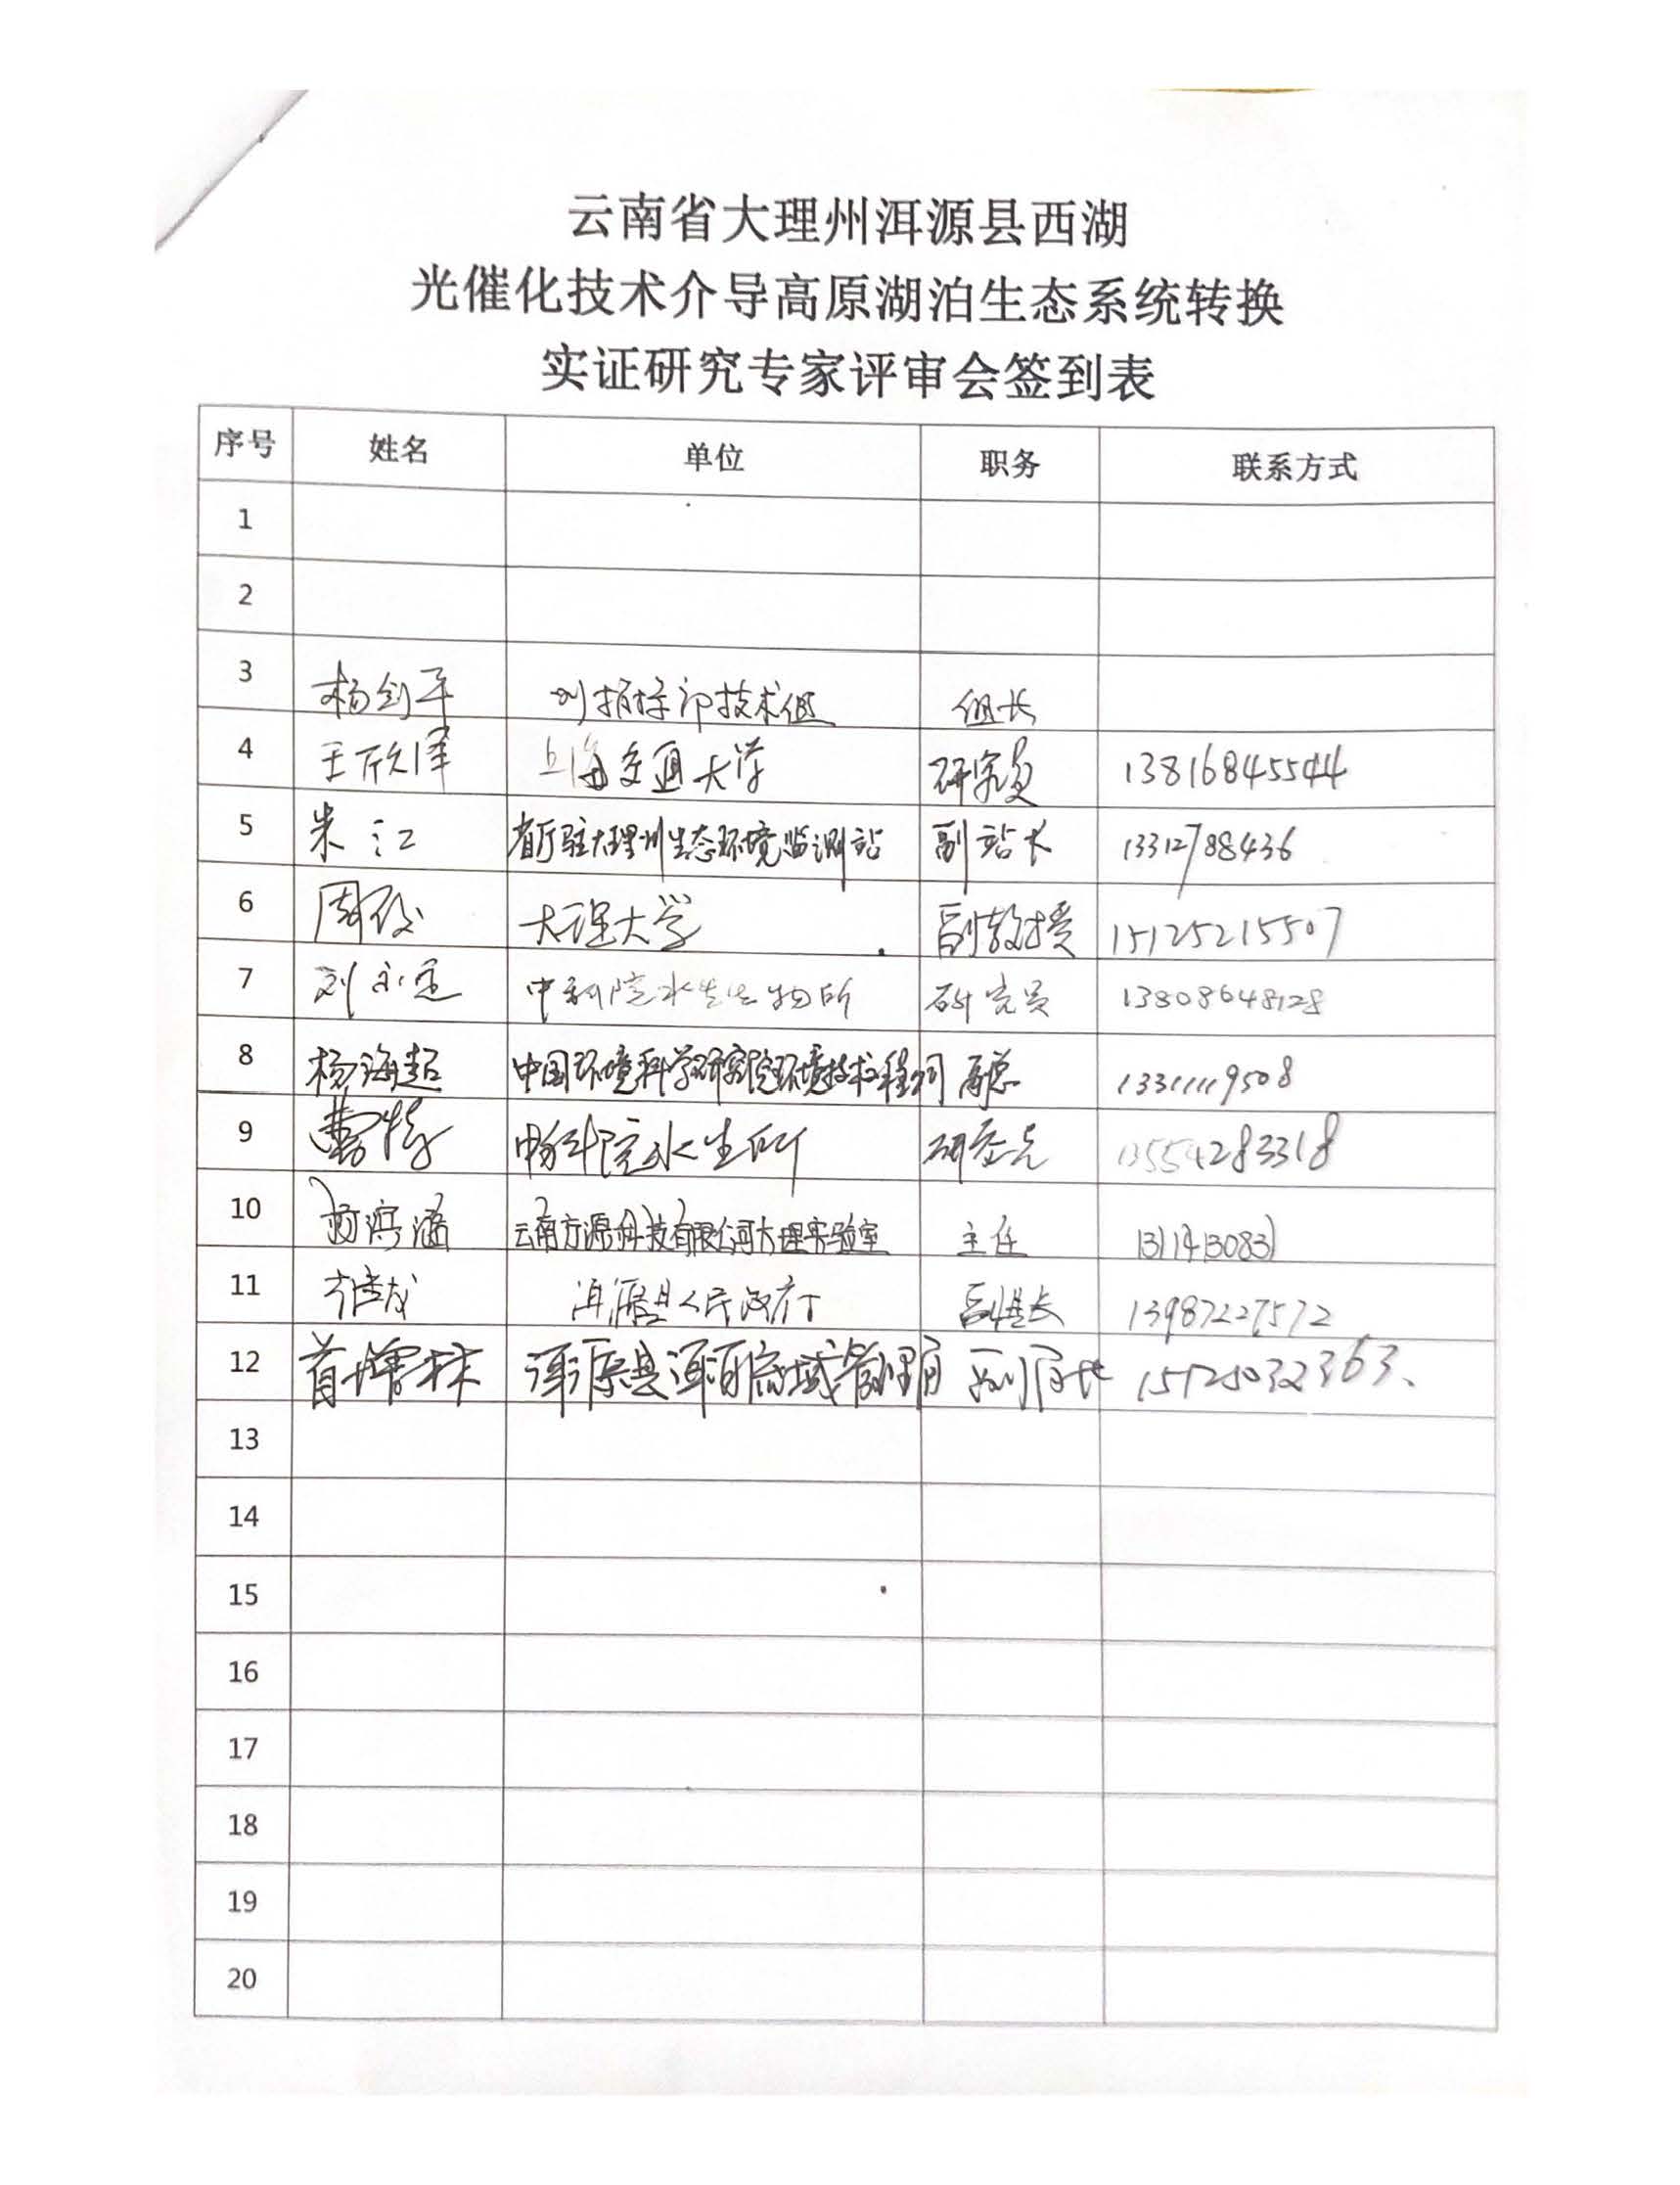 云南省大理州洱源县西湖
光催化技术介导高原湖泊生态系统转换
实证研究专家评审会签到表
序号 姓名 单位 职务 联系方式
1
2
3 杨剑平 技术组 组长
4 王欣泽 上海交通大学 研究员 13816845544
5 朱江 省厅驻大理州生态环境监测站 副站长 13312788436
6 大理大学 副教授 15125215507
7 刘永定 中科院水生生物所 研究员 13808648128
8 杨海超 中国环境科学研究院环境技术工程公司 13311119508
9 曹特 中科院水生所 研究员 13554283318
10 云南方源科技有限公司大理实验室 主任 13114130831
11 洱源县人民政府 副县长 13987227572
12 洱源县洱海流域管理局 副局长 15125032363
13
14
15
16
17
18
19
20